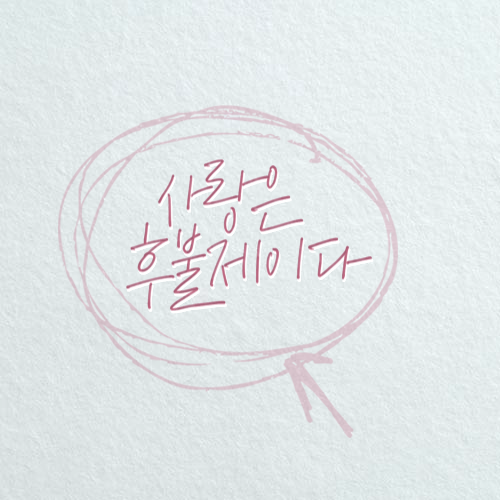 사랑은
후불제이다